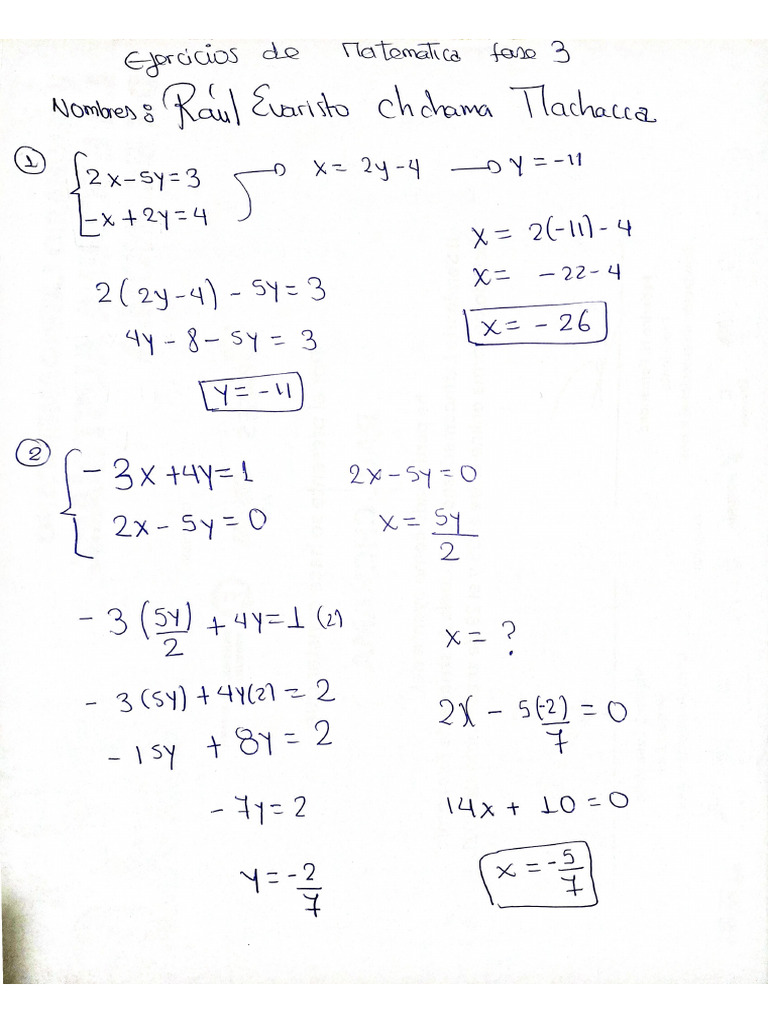 Ejercicios de Matemática fase 3
Nombres: Rául Evaristo chchama Machacca
① { 2x-5y=3 → x= 2y-4 → y=-11
-x+2y=4
x= 2(-11)-4
x= -22-4
x=-26
2(2y-4)-5y=3
4y-8-5y=3
y=-11
② { -3x+4y=1
2x-5y=0
2x-5y=0
x= 5y/2
-3(5y)/2 + 4y=1(2)
-3(5y)+4y(2)=2
-15y + 8y=2
-7y=2
y=-2/7
x= ?
2x - 5(-2)/7 = 0
14x + 10 = 0
x=-5/7